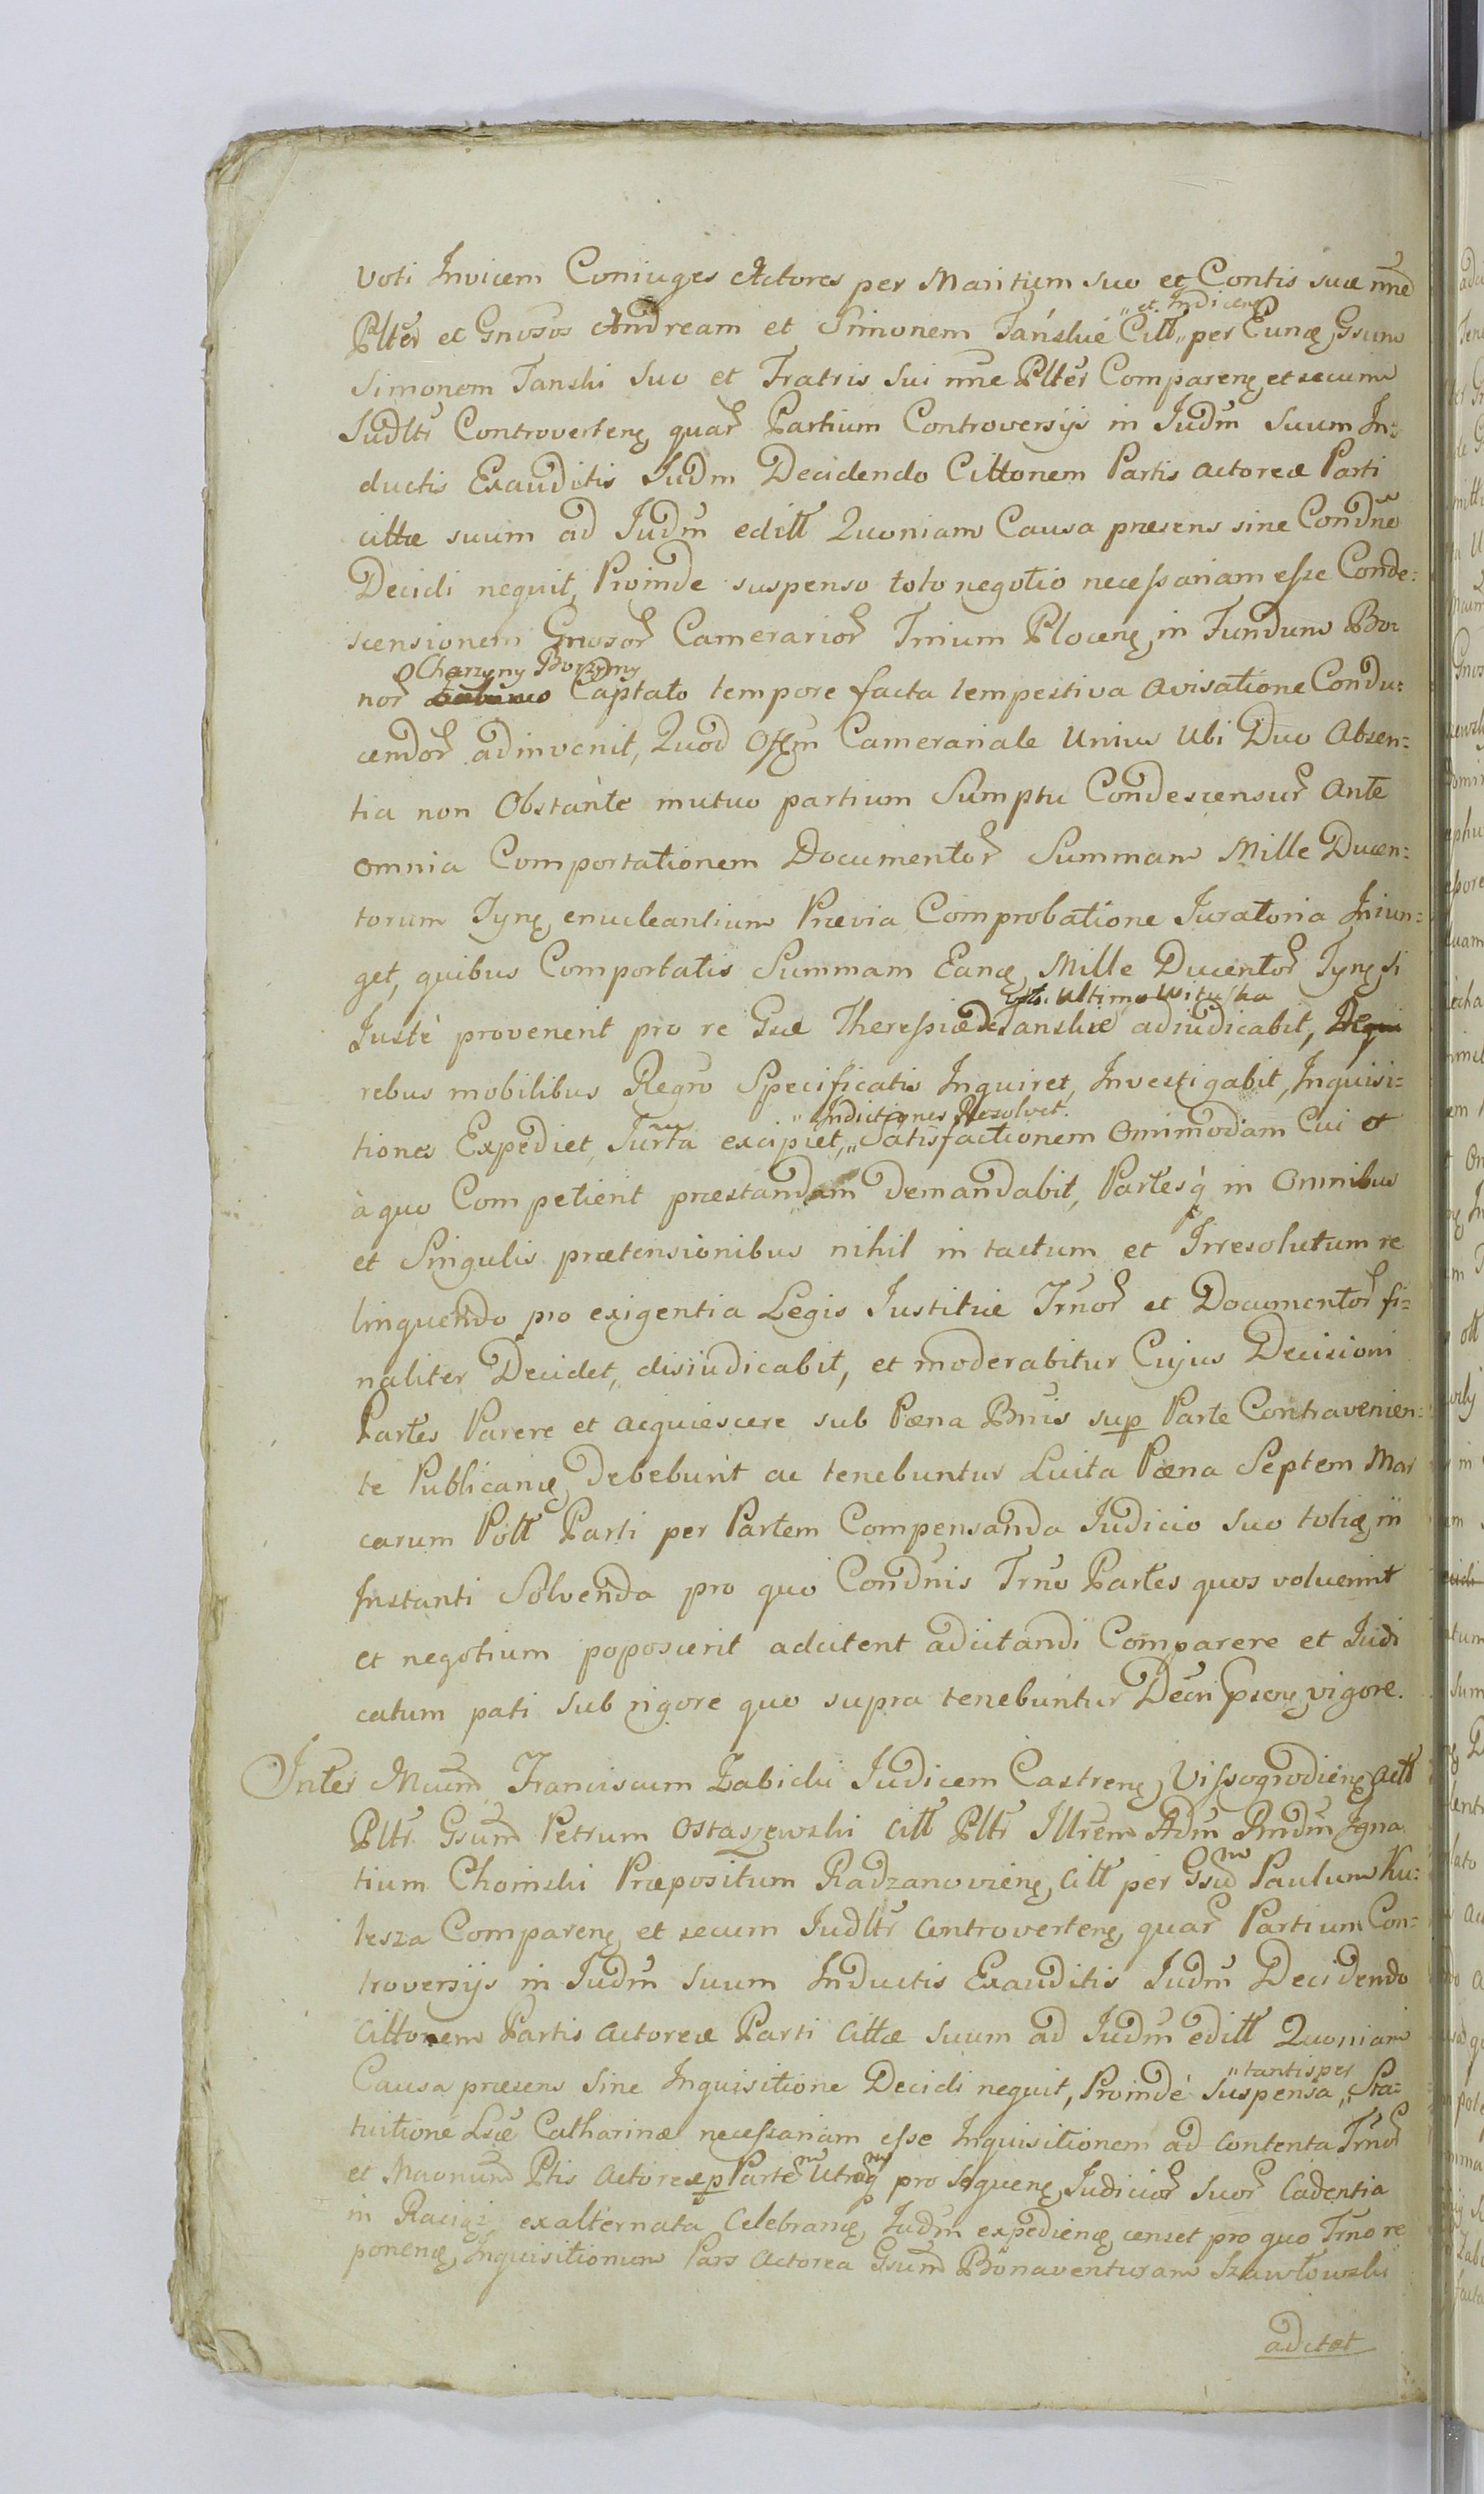 Voti Invicem Coniuges Actores per Maritum suo et Contis suæ nne
Plter et Gnosos Andream et Simonem Tanskie Citt „et Indicen„ per Eunæ Gsum
Simonem Tanski Suo et Fratris Sui nne Plter Compareñ et secum
Judltr Controverteñ quar Partium Controversijs in Judm Suum In:
ductis Exauditis Judm Decidendo Cittonem Partis Actoreæ Parti
cittæ suum ad Judm editt Quoniam Causa præsens sine Condne
Decidi nequit, Proinde suspenso toto negotio necessariam esse Conde:
scensionem Gnosor Camerarior Trium Ploceñ in Fundum Bo
nor Charzyny Borzymy Captato tempore facta tempestiva avisatione Condu:
cendor adinvenit, Quod Offm Camerariale Unius Ubi Duo Absen:
tia non Obstante mutuo partium Sumptu Condescensur Ante
omnia Comportationem Documentor Summam Mille Ducen:
torum Tyñ enucleantium Prævia Comprobatione Juratoria Iniun:
get, quibus Comportatis Summam Eanæ Mille Ducentor Tyñ si
Justè provenerit pro re Gsæ Theressiæ de Tanskie Ultimo Wituska adiudicabit, De
rebus mobilibus Regro Specificatis Inquiret, Investigabit, Inquisi:
tiones Expediet, Jurta excipiet, „Indictiones Resolvet. Satisfactionem Omimodam Cui et
à quo Competierit præstandam Demandabit, Partesq in Omnibus
et Singulis prætensionibus nihil in tactum et Irresolutum re
linquendo pro exigentia Legis Justitiæ Trnor et Documentor fi:
naliter Decidet, disiudicabit, et moderabitur Cujus Decisioni
Partes Parere et acquiescere sub Pæna Bnis sup Parte Contravenien:
te Publicanæ Debebunt ac tenebuntur Luita Pæna Septem Mar
carum Pott Parti per Partem Compensanda Judicio Suo totiæ in
Instanti Solvenda pro quo Condnis Trno Partes quos voluerint
et negotium poposcerit adcitent adcitandi Comparere et Judi
catum pati sub rigore quo supra tenebuntur Decri Pseñ vigore.
Inter Mcum Franciscum Zabicki Judicem Castreñ Vissogrodieñ Actt
Pltr Gsum Petrum Ostaszewski Citt Pltr Illrem Adm Rndm Igna
tium Choinski Præpositum Radzanovieñ Citt per Gsum Paulum Ku:
lesza Compareñ et secum Judltr Controverteñ quar Partium Con:
troversijs in Judm Suum Inductis Exauditis Judm Decidendo
Cittonem Partis Actoreæ Parti Cittæ Suum ad Judm editt Quoniam
Causa præsens Sine Inquisitione Decidi nequit, Proindè Suspensa „tantisper Sta:
tuitione Lsæ Catharinæ necessariam esse Inquisitionem ad Contenta Trnor
et Ptis Actoreæ p Partem Utramq pro Sequeñ Judicior Suor Cadentia
in Raciąż exalternata Celebranæ Judm expedienæ censet pro quo Trno re
ponenæ Inquisitionum Pars Actorea Gsum Bonaventuram Szawłowski
adcitet